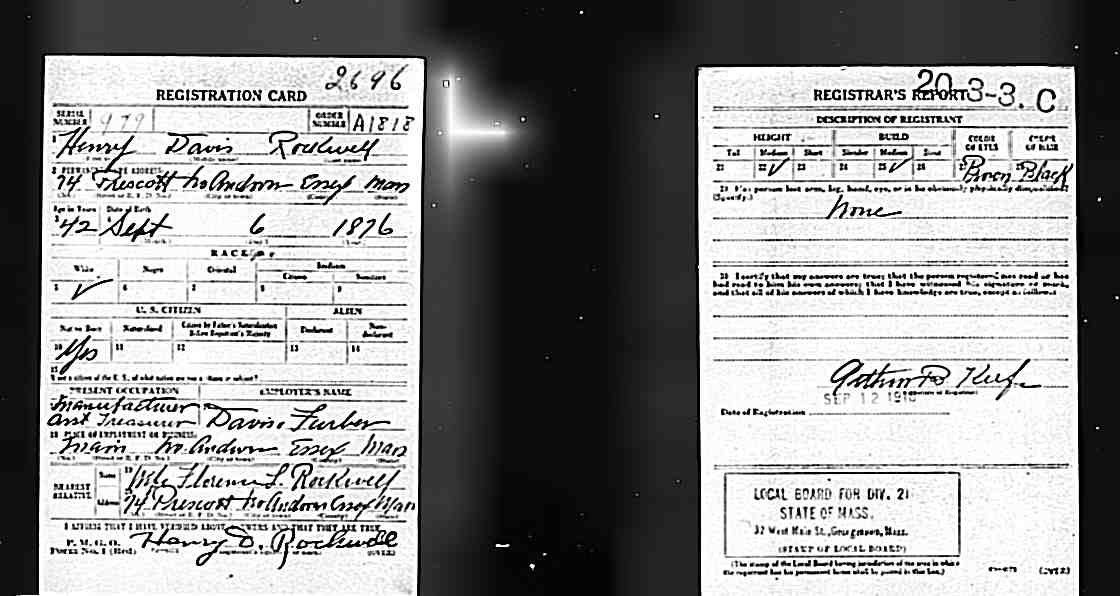 2696
REGISTRATION CARD
SERIAL NUMBER 979 ORDER NUMBER A1818
1 Henry Davis Rockwell
2 PERMANENT HOME ADDRESS:
74 Prescott No Andover Essex Mass
Age in Years Date of Birth
42 Sept 6 1876
RACE
White Negro Oriental Indian
Citizen Noncitizen
5 ✓ 6 7 8 9
U. S. CITIZEN ALIEN
Native Born Naturalized Citizen by Father's Naturalization Before Registrant's Majority Declarant Non-declarant
10 Yes 11 12 13 14
15
If not a citizen of the U. S., of what nation are you a citizen or subject?
PRESENT OCCUPATION EMPLOYER'S NAME
Manufacturer
Asst Treasurer Davis & Furber
18 PLACE OF EMPLOYMENT OR BUSINESS:
Main No. Andover Essex Mass
NEAREST RELATIVE Name 19 Mrs Florence L. Rockwell
Address 74 Prescott No Andover Essex Mass
I AFFIRM THAT I HAVE VERIFIED ABOVE ANSWERS AND THAT THEY ARE TRUE
P. M. G. O.
Form No. 1 (Red) Henry D. Rockwell (OVER)
20-3-3. C
REGISTRAR'S REPORT
DESCRIPTION OF REGISTRANT
HEIGHT BUILD COLOR OF EYES COLOR OF HAIR
Tall Medium Short Slender Medium Stout
21 22 ✓ 23 24 25 ✓ 26 27 Brown 28 Black
29 Has person lost arm, leg, hand, eye, or is he obviously physically disqualified?
(Specify.)
None
30 I certify that my answers are true; that the person registered has read or has
had read to him his own answers; that I have witnessed his signature or mark,
and that all of his answers of which I have knowledge are true, except as follows:
Arthur
(Signature of Registrar)
SEP 12 1918
Date of Registration
LOCAL BOARD FOR DIV. 21
STATE OF MASS.
32 West Main St., Georgetown, Mass.
(STAMP OF LOCAL BOARD)
(The stamp of the Local Board having jurisdiction of the area in which
the registrant has his permanent home shall be placed in this box.)
(OVER)